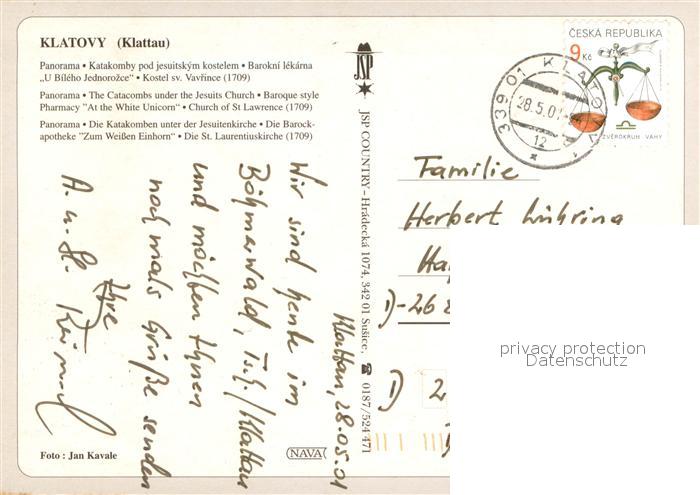 KLATOVY (Klattau)
Panorama • Katakomby pod jesuitským kostelem • Barokní lékárna
„U Bílého Jednorožce“ • Kostel sv. Vavřince (1709)
Panorama • The Catacombs under the Jesuits Church • Baroque style
Pharmacy "At the White Unicorn" • Church of St Lawrence (1709)
Panorama • Die Katakomben unter der Jesuitenkirche • Die Barock-
apotheke "Zum Weißen Einhorn" • Die St. Laurentiuskirche (1709)
Klattau, 28.05.01
Wir sind heute im
Böhmerwald, Tsch./Klattau
und möchten Ihnen
nochmals Grüße senden
Ihre
A. u. H.
Foto : Jan Kavale
NAVA
JSP
JSP COUNTRY – Hrádecká 1074, 342 01 Sušice, ☎ 0187/524 471
ČESKÁ REPUBLIKA
9 Kč
ZVĚROKRUH VÁHY
339 01 KLATOVY 1
28.5.01
12
Familie
Herbert
D-26
D 2
privacy protection
Datenschutz